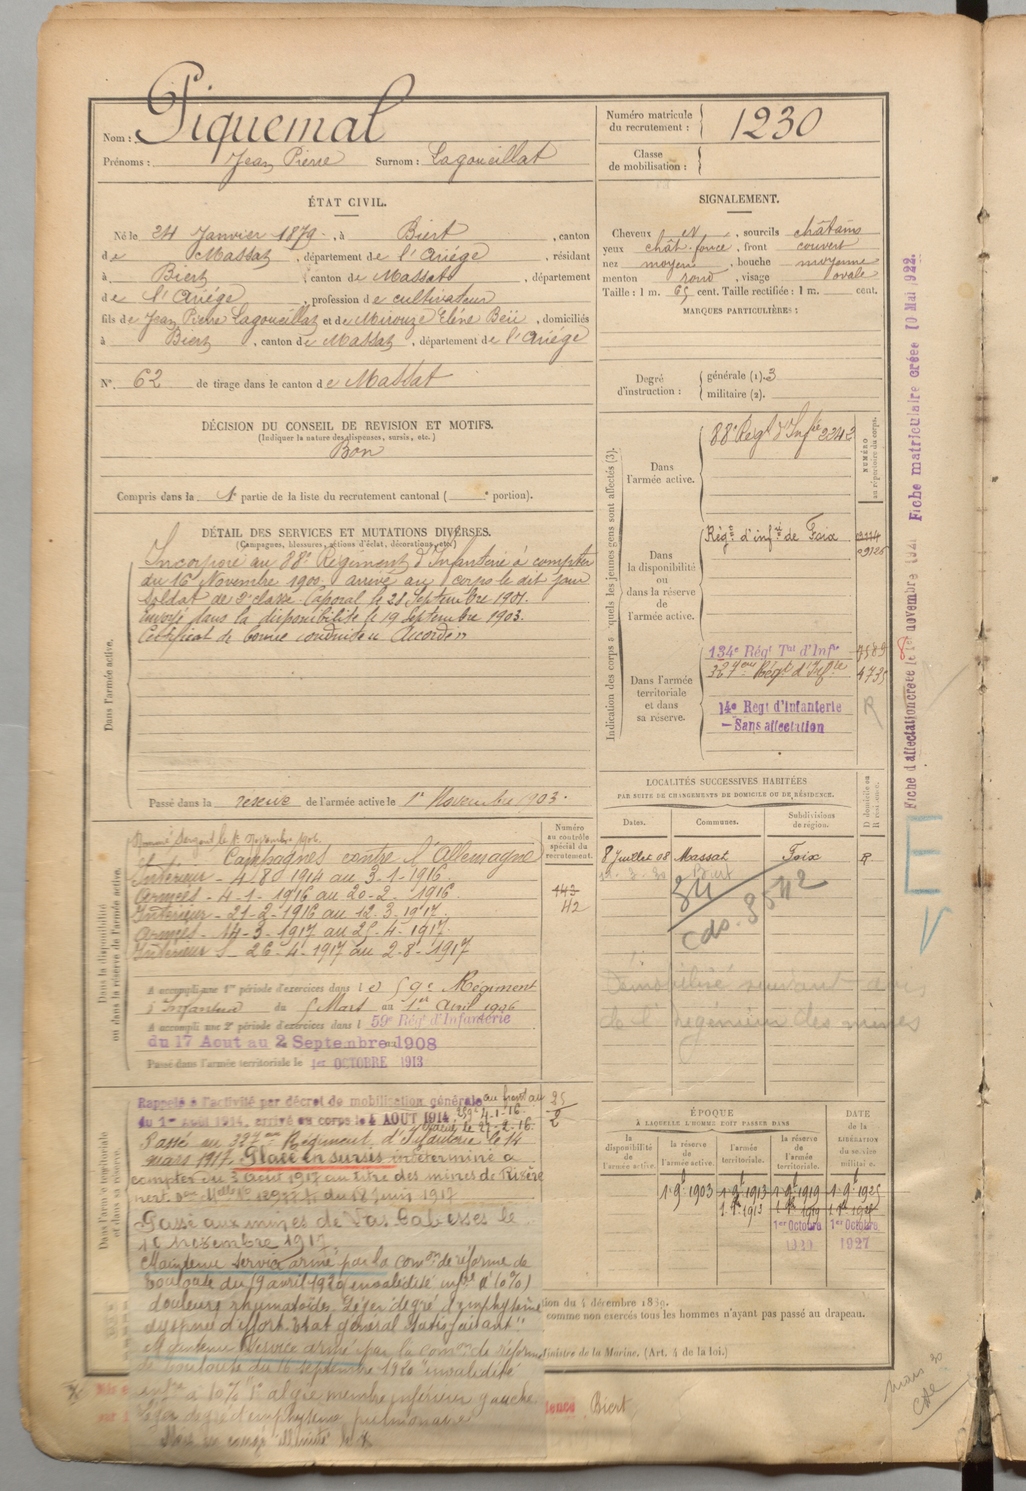 Nom : Piquemal
Prénoms : Jean Pierre Surnom : Lagoueillat
Numéro matricule du recrutement : 1230
Classe de mobilisation :
ÉTAT CIVIL.
Né le 24 Janvier 1879, à Biert, canton
de Massat, département de l'Ariège, résidant
à Biert, canton de Massat, département
de l'Ariège, profession de cultivateur
fils de Jean Pierre Lagoueillat et de Mirouze Elène Beü, domiciliés
à Biert, canton de Massat, département de l'Ariège
N° 62 de tirage dans le canton de Massat
SIGNALEMENT.
Cheveux id, sourcils châtains
yeux chât. foncé, front couvert
nez moyen, bouche moyenne
menton rond, visage ovale
Taille : 1 m. 65 cent. Taille rectifiée : 1 m. cent.
MARQUES PARTICULIÈRES :
Degré d'instruction : générale (1). 3
militaire (2).
DÉCISION DU CONSEIL DE REVISION ET MOTIFS.
(Indiquer la nature des dispenses, sursis, etc.)
Bon
Compris dans la 1e partie de la liste du recrutement cantonal ( e portion).
DÉTAIL DES SERVICES ET MUTATIONS DIVERSES.
(Campagnes, blessures, actions d'éclat, décorations, etc.)
Dans l'armée active.
Incorporé au 88e Régiment d'Infanterie à compter
du 16 Novembre 1900 arrivé au corps le dit jour
soldat de 2e classe Caporal le 28 septembre 1901.
Envoyé dans la disponibilité le 19 Septembre 1903.
Certificat de bonne conduite "Accordé"
Passé dans la réserve de l'armée active le 1er Novembre 1903.
Indication des corps auxquels les jeunes gens sont affectés (3).
NUMÉRO au répertoire du corps.
Dans l'armée active.
88e Régt d'Infie 2242
Dans la disponibilité ou dans la réserve de l'armée active.
Régt d'infie de Foix
Dans l'armée territoriale et dans sa réserve.
134e Régt Tal d'Infie
327eme Régt d'Infie 4735
14e Régt d'Infanterie R
- Sans affectation
Fiche d'affectation créée le 1er novembre 1921 Fiche matriculaire créée 10 Mai 1922.
LOCALITÉS SUCCESSIVES HABITÉES
PAR SUITE DE CHANGEMENTS DE DOMICILE OU DE RÉSIDENCE.
D domicile ou R résidence.
Dates. Communes. Subdivisions de région.
8 Juillet 08 Massat Foix R.
Biert
Démobilisé suivant avis
de l'ingénieur des mines
Dans la disponibilité ou dans la réserve de l'armée active.
Numéro au contrôle spécial du recrutement.
143
42
Nommé Sergent le 1er Novembre 1906
Campagnes contre l'Allemagne
Intérieur - 4/8 1914 au 3-1-1916.
Armées - 4-1-1916 au 20-2-1916
Intérieur - 21-2-1916 au 12.3.1917.
Armées - 14-3-1917 au 25-4-1917.
Intérieur - 26-4-1917 au 2-8-1917
A accompli une 1re période d'exercices dans le 59e Régiment
d'Infanterie du 5 Mars au 1er Avril 1906
A accompli une 2e période d'exercices dans le 59e Rég. d'Infanterie
du 17 Aout au 2 Septembre 1908
Passé dans l'armée territoriale le 1er OCTOBRE 1913
ÉPOQUE
À LAQUELLE L'HOMME DOIT PASSER DANS
DATE de la LIBÉRATION du service militaire.
la disponibilité de l'armée active. la réserve de l'armée active. l'armée territoriale. la réserve de l'armée territoriale.
1.9e 1903 1.9e 1913 1.9e 1919 1.9e 1925
1er Octobre 1er Octobre
1927
Dans l'armée territoriale et dans sa réserve.
Rappelé à l'activité par décret de mobilisation générale
du 1er août 1914, arrivé au corps le 4 AOUT 1914.
Passé au 327eme Régiment d'Infanterie le 14
mars 1917. Placé en sursis indéterminé à
compter du 3 août 1917 au titre des mines de
du 12 Juin 1917
Passé aux mines de Las Cabesses le
16 novembre 1917
Maintenu service armé par la Comon de réforme de
Toulouse du 19 avril 1920 invalidité infre à 10%)
douleurs rhumatoïdes. Léger degré d'emphysème
dyspnée d'effort. Etat général satisfaisant"
Maintenu Service armé par la Comon de réforme
de Toulouse du 16 septembre 1920 "invalidité
infre à 10% 1° algie membre inférieur gauche
léger degré d'emphysème pulmonaire
tion du 4 décembre 1889.
comme non exercés tous les hommes n'ayant pas passé au drapeau.
Ministre de la Marine. (Art. 4 de la loi.)
dence Biert